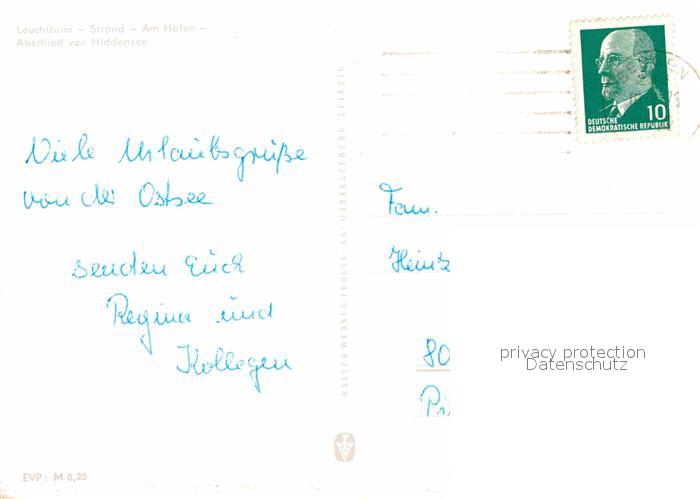 Leuchtturm – Strand – Am Hafen –
Abschied von Hiddensee
Viele Urlaubsgrüße
von der Ostsee
senden Euch
Regina und
Kollegen
EVP: M 0,20
WALTER WERNER VERLAG KG · MARKKLEEBERG LEIPZIG
10
DEUTSCHE
DEMOKRATISCHE REPUBLIK
Fam.
Heinz
80
privacy protection
Datenschutz